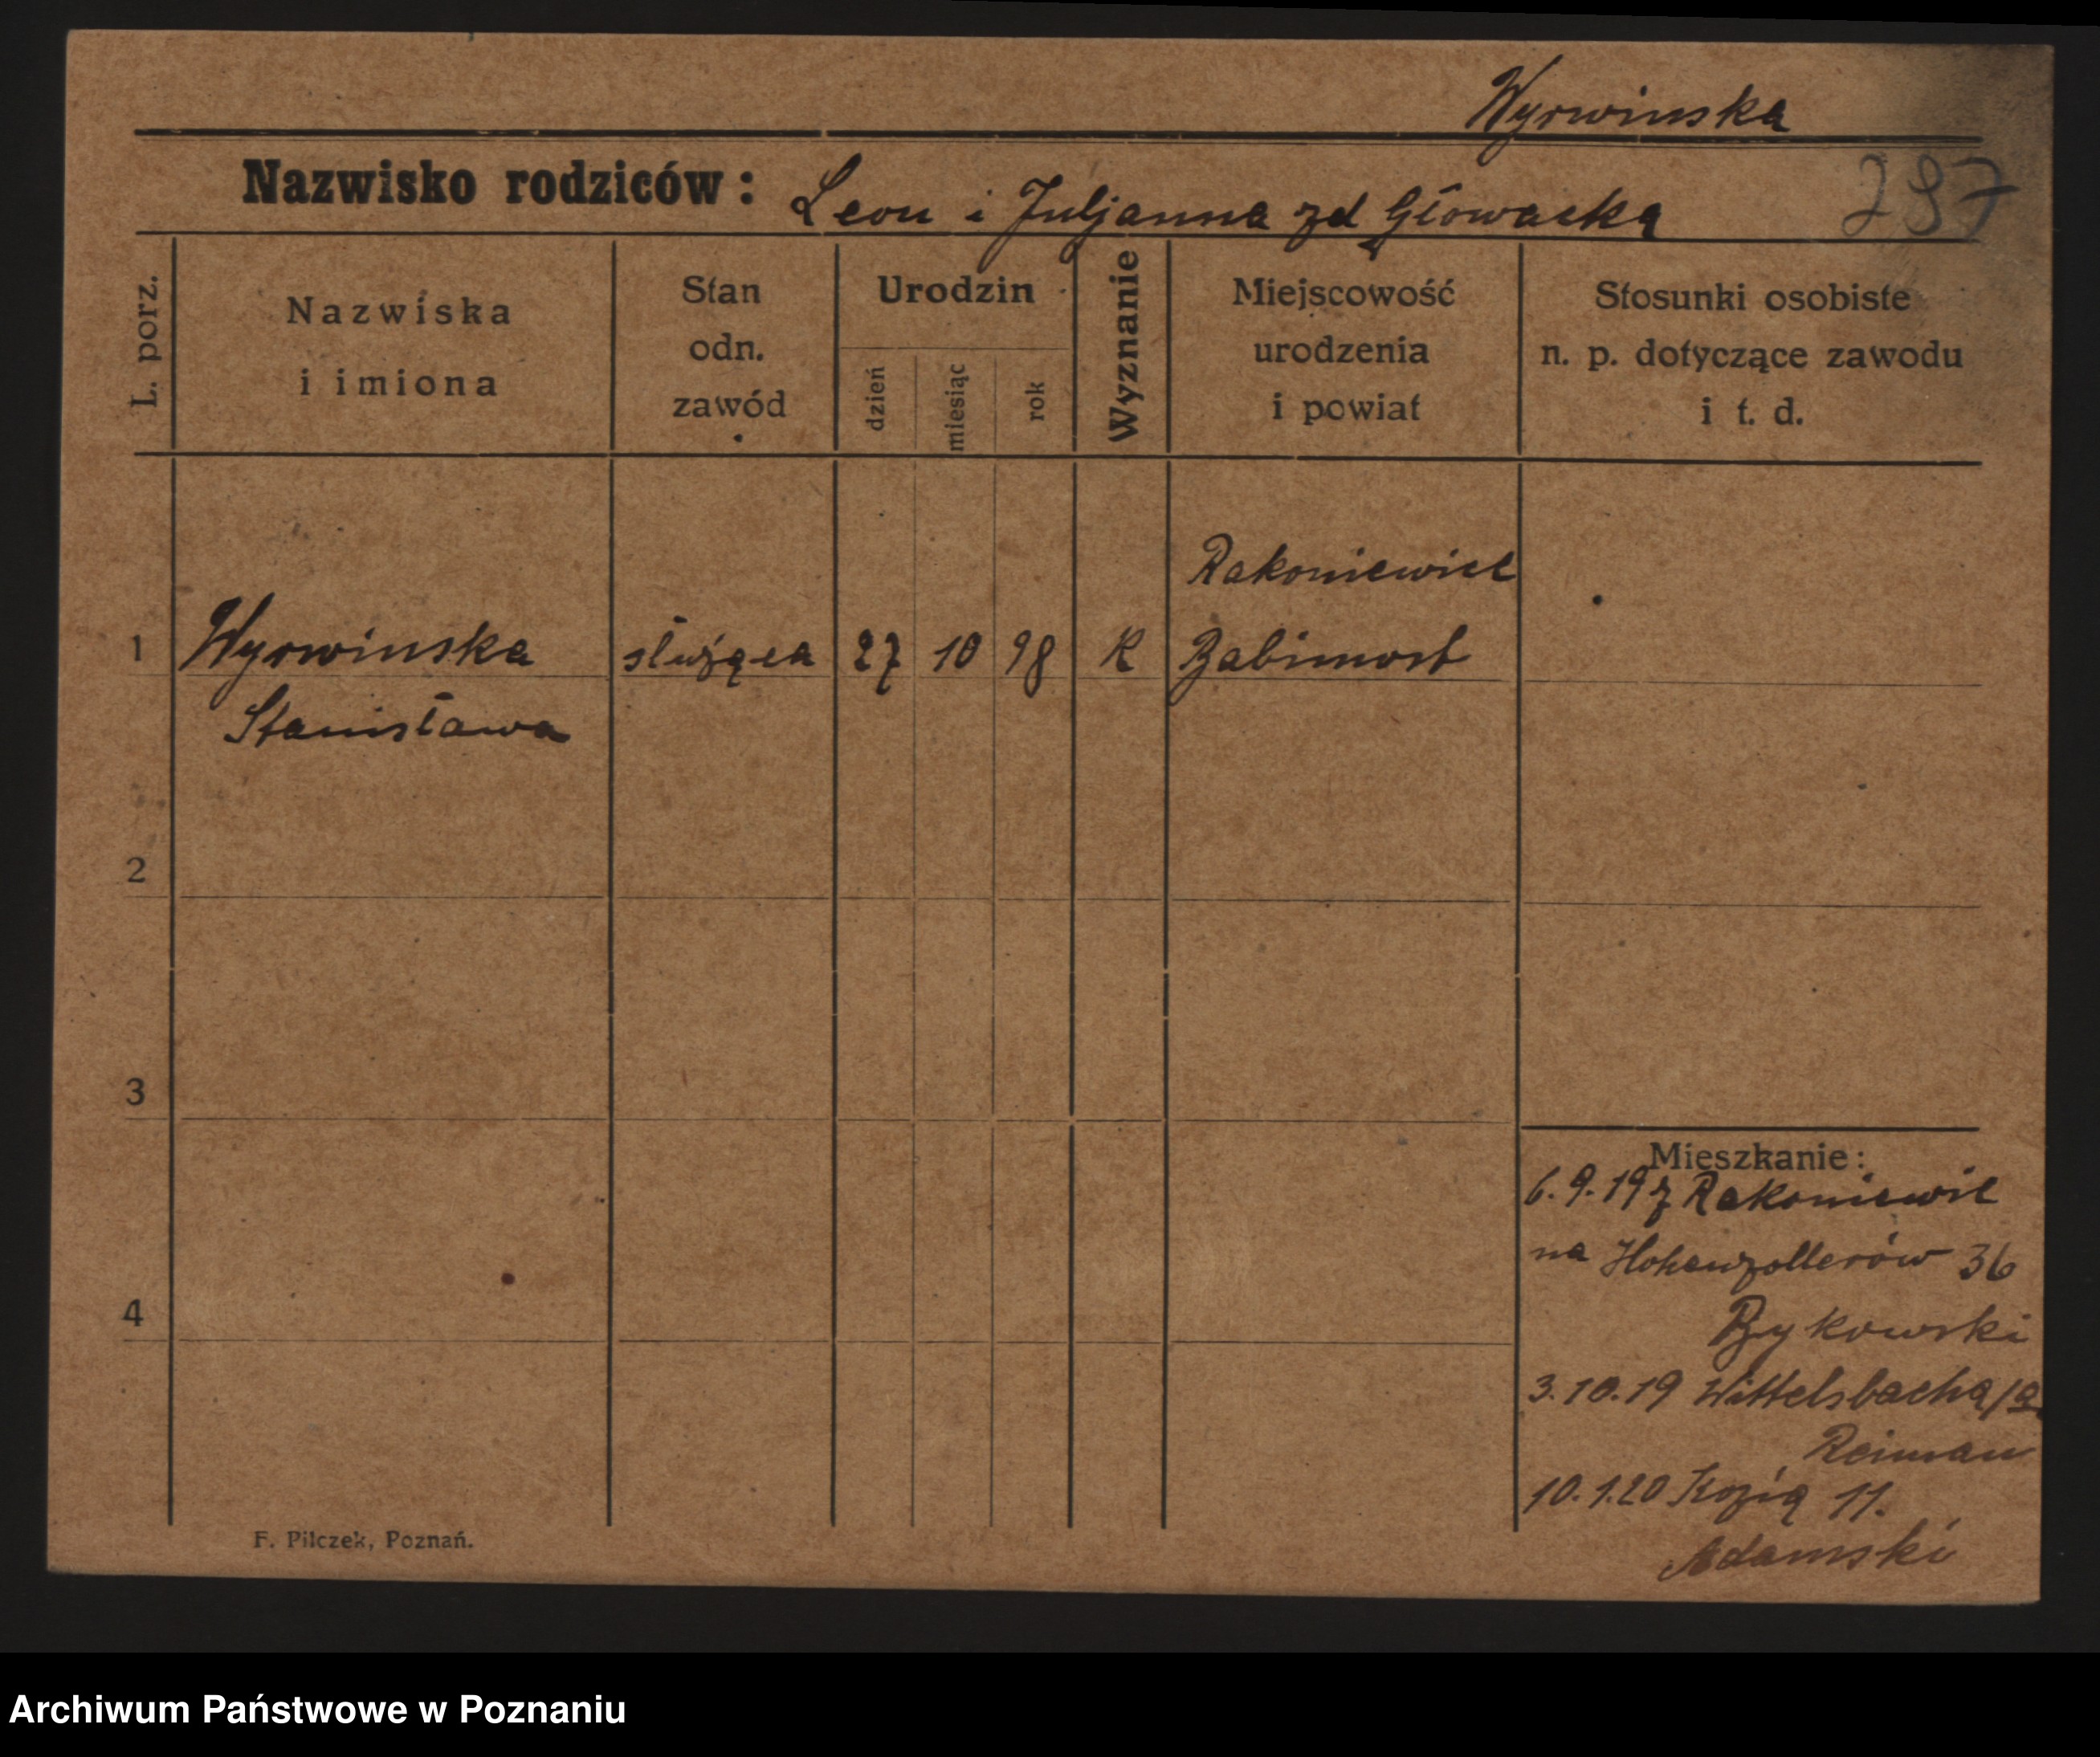 Wyrwinska
Nazwisko rodziców: Leon i Juljanna zd Głowacka
297
L. porz.
Nazwiska
i imiona
Stan
odn.
zawód
Urodzin
dzień
miesiąc
rok
Wyznanie
Miejscowość
urodzenia
i powiat
Stosunki osobiste
n. p. dotyczące zawodu
i t. d.
Rakoniewice
1 Wyrwinska służąca 27 10 98 K Babimost
Stanisława
2
3
4
Mieszkanie:
6.9.19 z Rakoniewic
na Hohenzollerów 36
Bykowski
3.10.19 Wittelsbacha
Reiman
10.1.20 Kozią 11.
Adamski
F. Pilczek, Poznań.
Archiwum Państwowe w Poznaniu